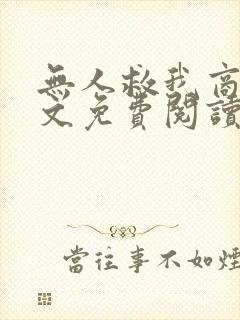 無人救我高
文免費閱讀
當往事不如煙